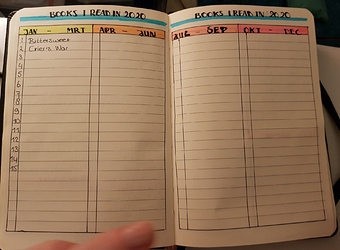 BOOKS I READ IN 2020
JAN - MRT
APR - JUN
1 Bittersweet
2 Crier's War
3
4
5
6
7
8
9
10
11
12
13
14
15
BOOKS I READ IN 2020
JUL - SEP
OKT - DEC